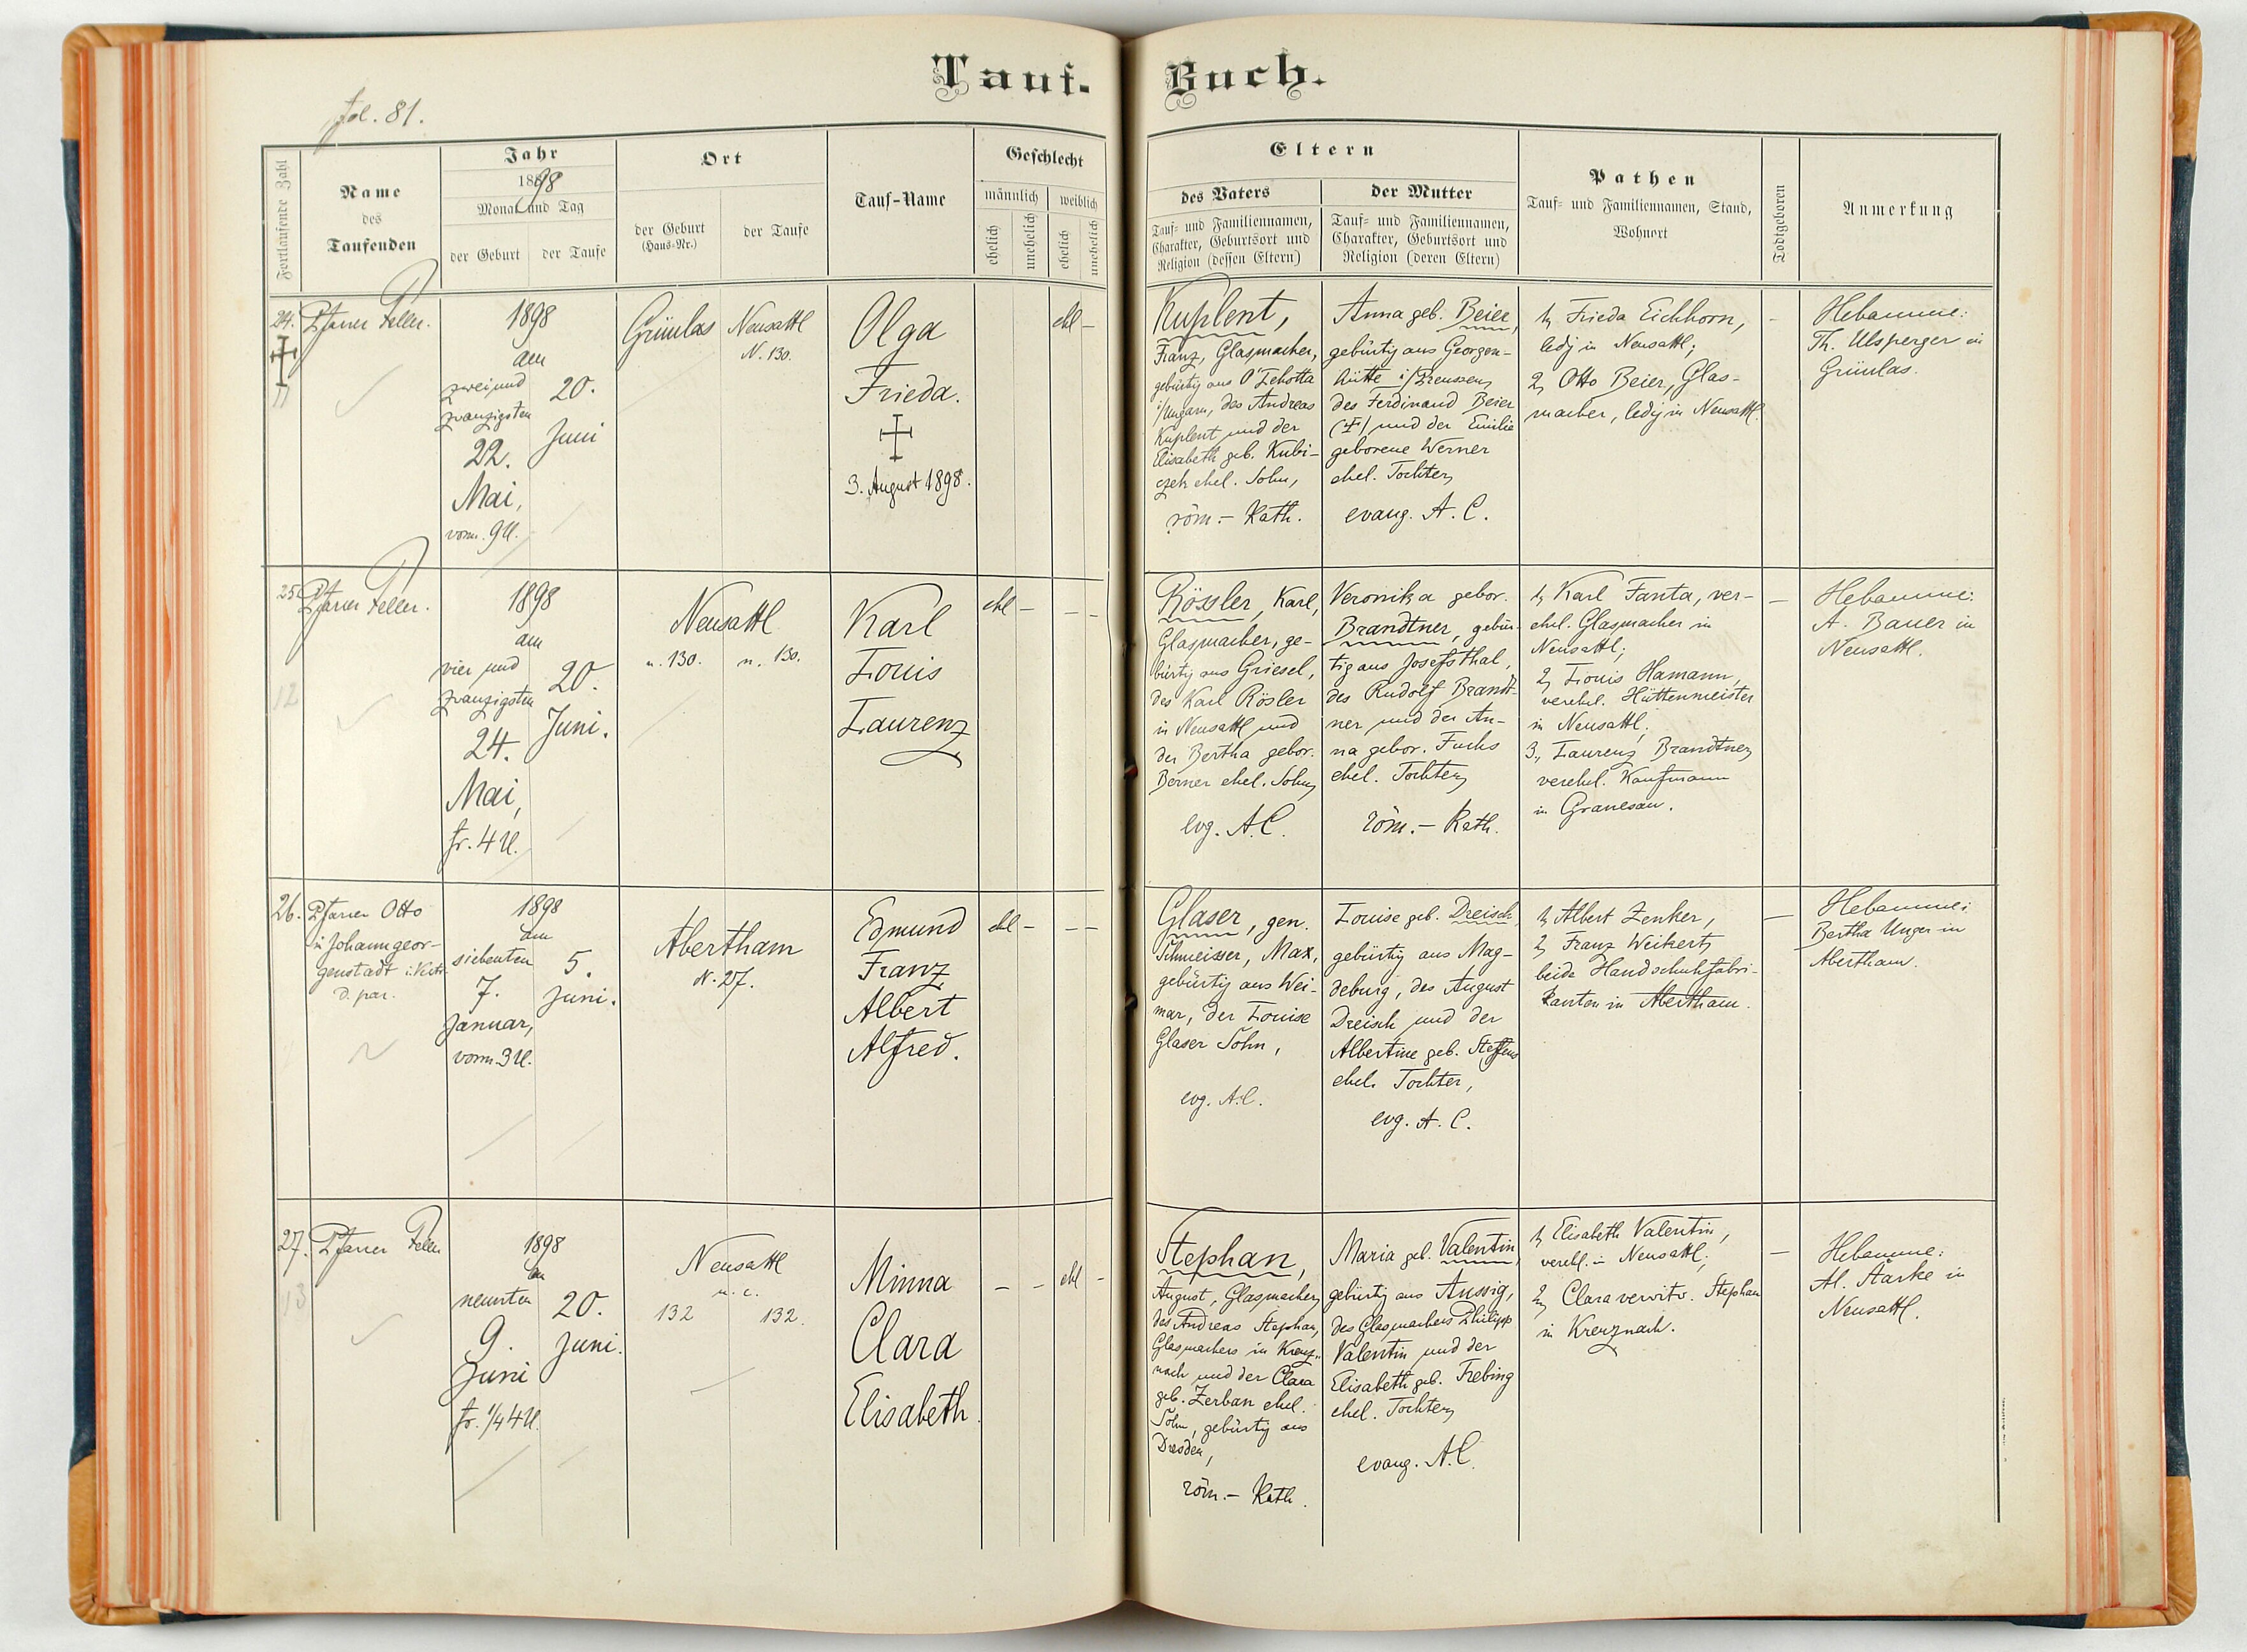 Tauf-
Buch.
fol. 81.
Fortlaufende Zahl
Name
des
Taufenden
Jahr
1898
Monat und Tag
der Geburt
der Taufe
Ort
der Geburt
(Haus-Nr.)
der Taufe
Tauf-Name
Geschlecht
männlich
weiblich
ehelich
unehelich
ehelich
unehelich
Eltern
des Vaters
Tauf- und Familiennamen,
Charakter, Geburtsort und
Religion (dessen Eltern)
der Mutter
Tauf- und Familiennamen,
Charakter, Geburtsort und
Religion (deren Eltern)
Pathen
Tauf- und Familiennamen, Stand,
Wohnort
Todtgeboren
Anmerkung
24.
11
Pfarrer Feller.
1898
am
zweiund
zwanzigsten
22.
Mai,
vorm. 9 U.
20.
Juni
Grünlas
Neusattl
N. 130.
Olga
Frieda.
3. August 1898.
ehl –
Kuplent,
Franz, Glasmacher,
gebürtig aus O'Lehotta
i/Ungarn, des Andreas
Kuplent und der
Elisabeth geb. Kubi-
czek ehel. Sohn,
röm.- Kath.
Anna geb. Beier,
gebürtig aus Georgen-
hütte i/Preussen,
des Ferdinand Beier
(‡) und der Emilie
geborene Werner
ehel. Tochter,
evang. A. C.
1, Frieda Eichhorn,
ledg in Neusattl;
2, Otto Beier, Glas-
macher, ledig in Neusattl.
–
Hebamme:
Th. Ulsperger in
Grünlas.
25.
12
Pfarrer Feller.
1898
am
vier und
zwanzigsten
24.
Mai,
fr. 4 U.
20.
Juni.
Neusattl
n. 130.
n. 130.
Karl
Louis
Laurenz
ehl –
– –
Rössler, Karl,
Glasmacher, ge-
bürtig aus Griesel,
des Karl Rösler
in Neusattl und
der Bertha gebor.
Berner ehel. Sohn,
evg. A.C.
Veronika gebor.
Brandtner, gebür-
tig aus Josefsthal,
des Rudolf Brandt-
ner und der An-
na gebor. Fuchs
ehel. Tochter,
röm.- Kath.
1, Karl Fanta, ver-
ehel. Glasmacher in
Neusattl;
2, Louis Hamann,
verehel. Hüttenmeister
in Neusattl;
3., Laurenz Brandtner,
verehel. Kaufmann
in Granesau.
–
Hebamme:
A. Bauer in
Neusattl.
26.
Pfarrer Otto
in Johanngeor-
genstadt
d. par.
1898
am
siebenten
7.
Januar,
vorm. 3 U.
5.
Juni.
Abertham
N. 27.
Edmund
Franz
Albert
Alfred.
ehl –
– –
Glaser, gen.
Schmeisser, Max,
gebürtig aus Wei-
mar, der Louise
Glaser Sohn,
evg. A.C.
Louise geb. Dreisch,
gebürtig aus Mag-
deburg, des August
Dreisch und der
Albertine geb. Steffens
ehel. Tochter,
evg. A. C.
1, Albert Zenker,
2, Franz Weikert,
beide Handschuhfabri-
kanten in Abertham.
–
Hebamme:
Bertha Unger in
Abertham.
27.
13
Pfarrer Feller
1898
am
neunten
9.
Juni
fr. 1/4 4 U.
20.
Juni.
Neusattl
n. c.
132
132.
Minna
Clara
Elisabeth.
– –
ehl –
Stephan,
August, Glasmacher,
des Andreas Stephan,
Glasmachers in Kreuz-
nach und der Clara
geb. Zerban ehel.
Sohn, gebürtig aus
Dresden,
röm.- Kath.
Maria geb. Valentin,
gebürtig aus Aussig,
des Glasmachers Philipp
Valentin und der
Elisabeth geb. Trebing
ehel. Tochter,
evang. A.C.
1, Elisabeth Valentin,
verehl. in Neusattl;
2, Clara verwitw. Stephan
in Kreuznach.
–
Hebamme:
Al. Starke in
Neusattl.